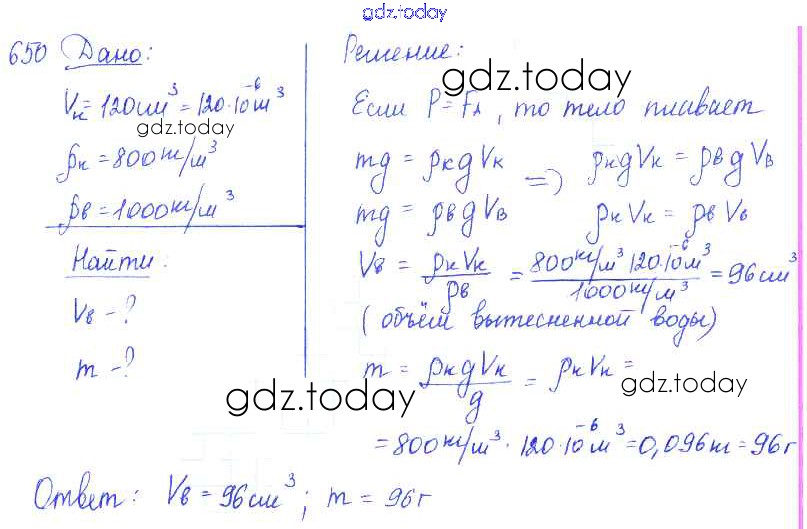 gdz.today
650 Дано:
Vк = 120 см³ = 120·10⁻⁶ м³
gdz.today
ρк = 800 кг/м³
ρв = 1000 кг/м³
Найти:
Vв - ?
m - ?
Решение:
gdz.today
Если P = Fл, то тело плавает
mg = ρкgVк => ρкgVк = ρвgVв
mg = ρвgVв ρкVк = ρвVв
Vв = ρкVк / ρв = 800 кг/м³ 120·10⁻⁶ м³ / 1000 кг/м³ = 96 см³
(объём вытесненной воды)
m = ρкgVк / g = ρкVк =
gdz.today
gdz.today
= 800 кг/м³ · 120·10⁻⁶ м³ = 0,096 кг = 96 г
Ответ: Vв = 96 см³; m = 96 г